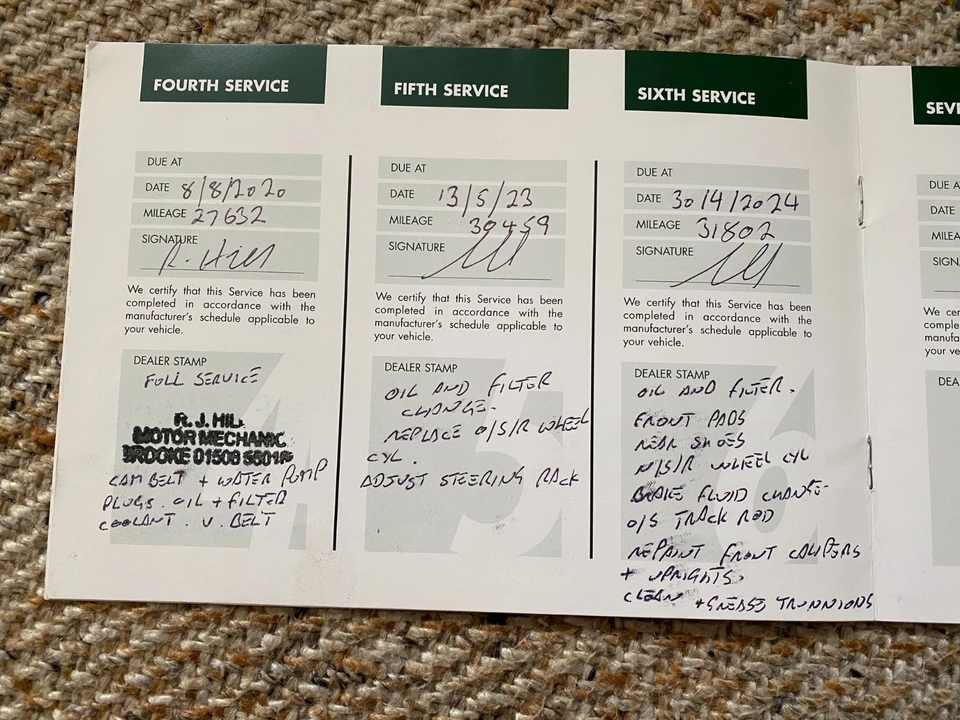 FOURTH SERVICE
DUE AT
DATE 8/8/2020
MILEAGE 27632
SIGNATURE
R. Hill
We certify that this Service has been
completed in accordance with the
manufacturer's schedule applicable to
your vehicle.
DEALER STAMP
FULL SERVICE
R. J. HILL
MOTOR MECHANIC
BROOKE 01508
CAM BELT + WATER PUMP
PLUGS. OIL + FILTER
COOLANT. V. BELT
FIFTH SERVICE
DUE AT
DATE 13/5/23
MILEAGE 30459
SIGNATURE
We certify that this Service has been
completed in accordance with the
manufacturer's schedule applicable to
your vehicle.
DEALER STAMP
OIL AND FILTER
CHANGE.
REPLACE O/S/R WHEEL
CYL.
ADJUST STEERING RACK
SIXTH SERVICE
DUE AT
DATE 30/4/2024
MILEAGE 31802
SIGNATURE
We certify that this Service has been
completed in accordance with the
manufacturer's schedule applicable to
your vehicle.
DEALER STAMP
OIL AND FILTER.
FRONT PADS
REAR SHOES
N/S/R WHEEL CYL
BRAKE FLUID CHANGE
O/S TRACK ROD
REPAINT FRONT CALIPERS
+ UPRIGHTS.
CLEAN + GREASE TRUNNIONS
SEVE
DUE A
DATE
MILEA
SIGN
We cer
comple
manufa
your ve
DEA